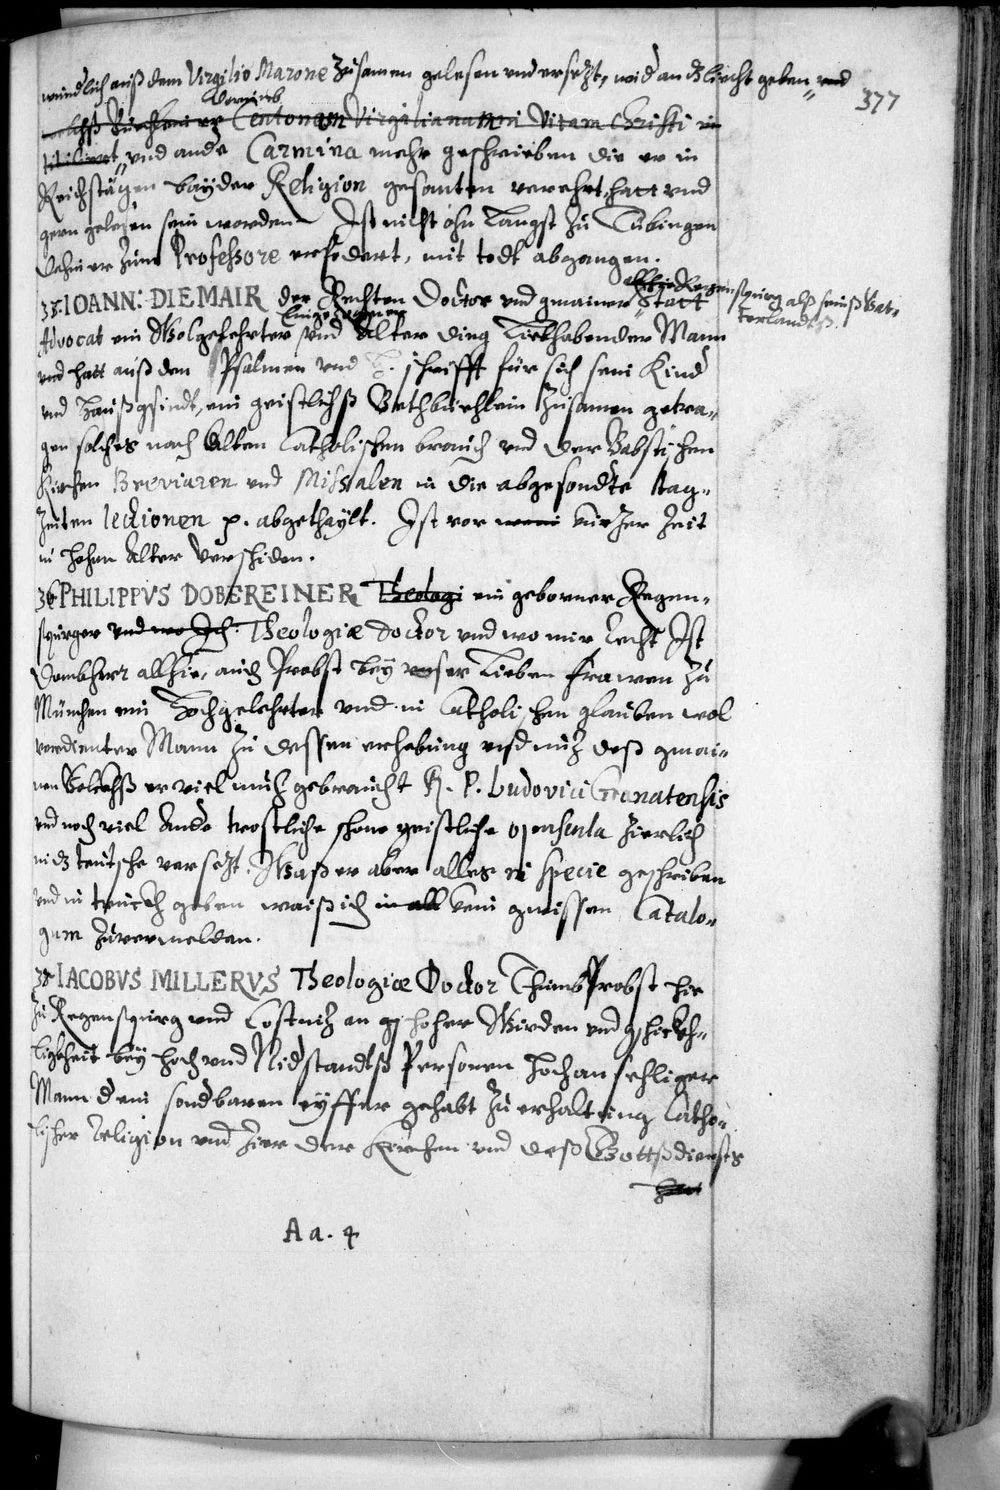 mündlich auß dem Virgilio Marone Zusamen gelesen und versezt, und an dz liecht geben, und
377
Centonem Virgilianum Vitam Christi in
und ande Carmina mehr geschrieben die er in
Reichstägen bayder Religion gesanten verehrt, hatt und
gern gelesen sein worden. Ist nicht ohn Langst zu Tübingen
Dahin er zum Professore erfodert, mit todt abgangen.
35. IOANN: DIEMAIR der Rechten Doctor und gmainer Statt
Regenspurg alß seinß Vat-
terlandtß.
Advocat ein Wolgelehrter und Alter ding Liebhabender Mann
und hatt auß den Psalmen und H. schrifft für sich sein Kind
und Haußgsindt, ein geistlichß Betbüechlein Zusamen getra-
gen solches nach Alten Catholischen brauch und der Babstischen
Kirchen Breviaren und Missalen in die abgesondte tag-
Zeiten lectionen p. abgethaylt. Ist vor kurzer Zeit
in hohen Alter verschiden.
36 PHILIPPVS DOBEREINER Theologi ein geborner Regen-
spurger und wo Ich. Theologiæ doctor und wo mir recht Ist
Dombherr allhie, auch Probst bey unser Lieben frawen Zu
München ein Hochgelehrter und in Catholischen glauben wol
verdienter Mann Zu dessen erhebung und nuz deß gmai-
nen Volckhß er viel mühe gebraucht R. P. Ludovici Granatensis
und noch viel Ande trostliche schone geistliche opuscula Zierlich
in dz teutsche versezt. Waß er aber alles in specie geschriben
und in truckh geben waiß ich kein gwissen Catalo-
gum Zuvermelden.
38 IACOBVS MILLERVS Theologiæ Doctor ThumbProbst hie
Zu Regenspurg und Costniz an hoher Wirden und gschickh-
ligkheit bey hoch und Nidstandtß Personen Hochansehliger
Mann d ein sondbaren eyffer gehabt Zu erhaltung Catho-
lischer religion und Zier der Kirchen und deß Gottßdiensts
Aa. 4